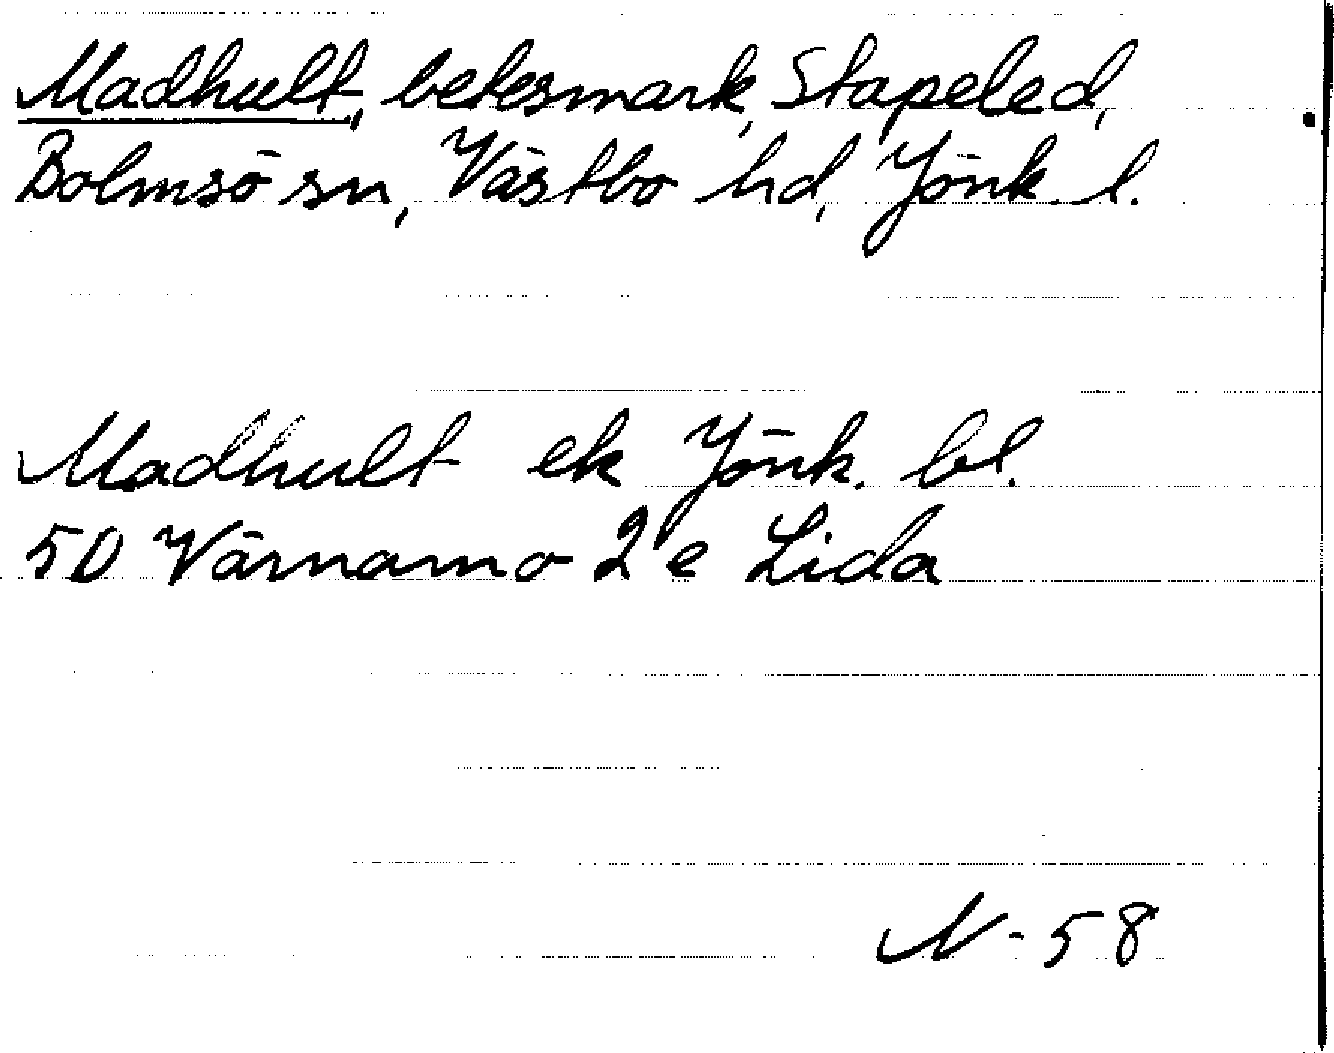 Madhult, betesmark, Stapeled,
Bolmsö sn, Västbo hd, Jönk. l.
Madhult ek Jönk. bl.
50 Värnamo 2 e Lida
N-58